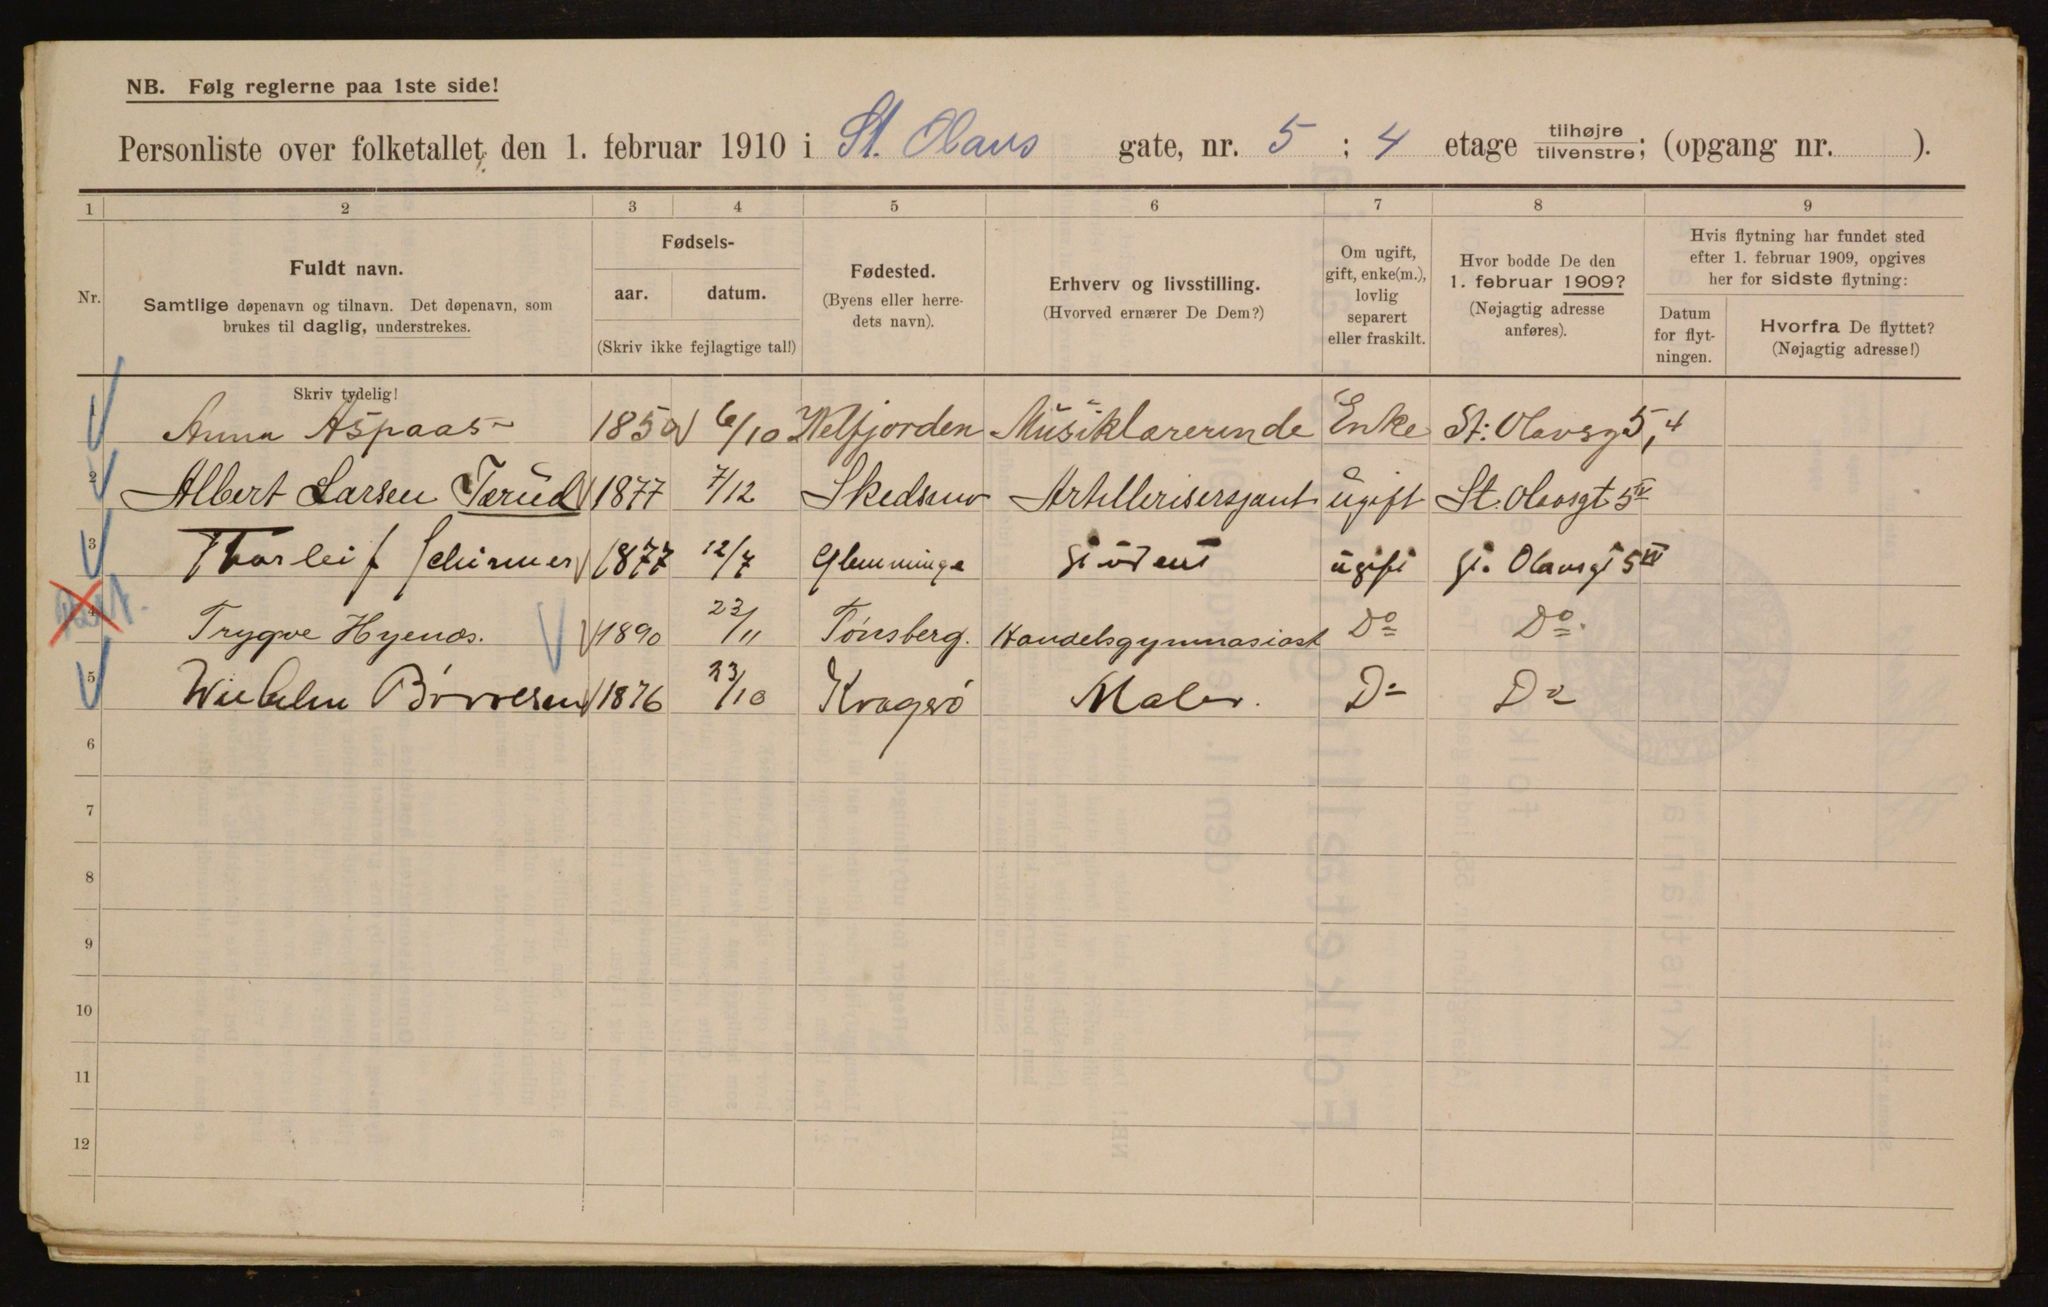 NB. Følg reglerne paa 1ste side!
Personliste over folketallet den 1. februar 1910 i St. Olavs gate, nr. 5 ; 4 etage tilhøjre tilvenstre; (opgang nr. ).
1 2 3 4 5 6 7 8 9
Nr.
Fuldt navn.
Samtlige døpenavn og tilnavn. Det døpenavn, som
brukes til daglig, understrekes.
Skriv tydelig!
Fødsels-
aar. datum.
(Skriv ikke fejlagtige tal!)
Fødested.
(Byens eller herre-
dets navn).
Erhverv og livsstilling.
(Hvorved ernærer De Dem?)
Om ugift,
gift, enke(m.),
lovlig
separert
eller fraskilt.
Hvor bodde De den
1. februar 1909?
(Nøjagtig adresse
anføres).
Hvis flytning har fundet sted
efter 1. februar 1909, opgives
her for sidste flytning:
Datum
for flyt-
ningen.
Hvorfra De flyttet?
(Nøjagtig adresse!)
1 Anna Aspaas 1850 6/10 Velfjorden Musiklærerinde Enke St. Olavsg 5, 4
2 Albert Larsen Tærud 1877 7/12 Skedsmo Artillerisersjant ugift St. Olavsgt 5 IV
3 Thorleif Schirmer 1877 12/7 Glemminge Student ugift St. Olavsgt 5 IV
4 Trygve Hyenæs. 1890 23/11 Tønsberg. Handelsgymnasiast Do Do
5 Wilhelm Børresen 1876 23/10 Kragerø Maler. Do Do
6
7
8
9
10
11
12